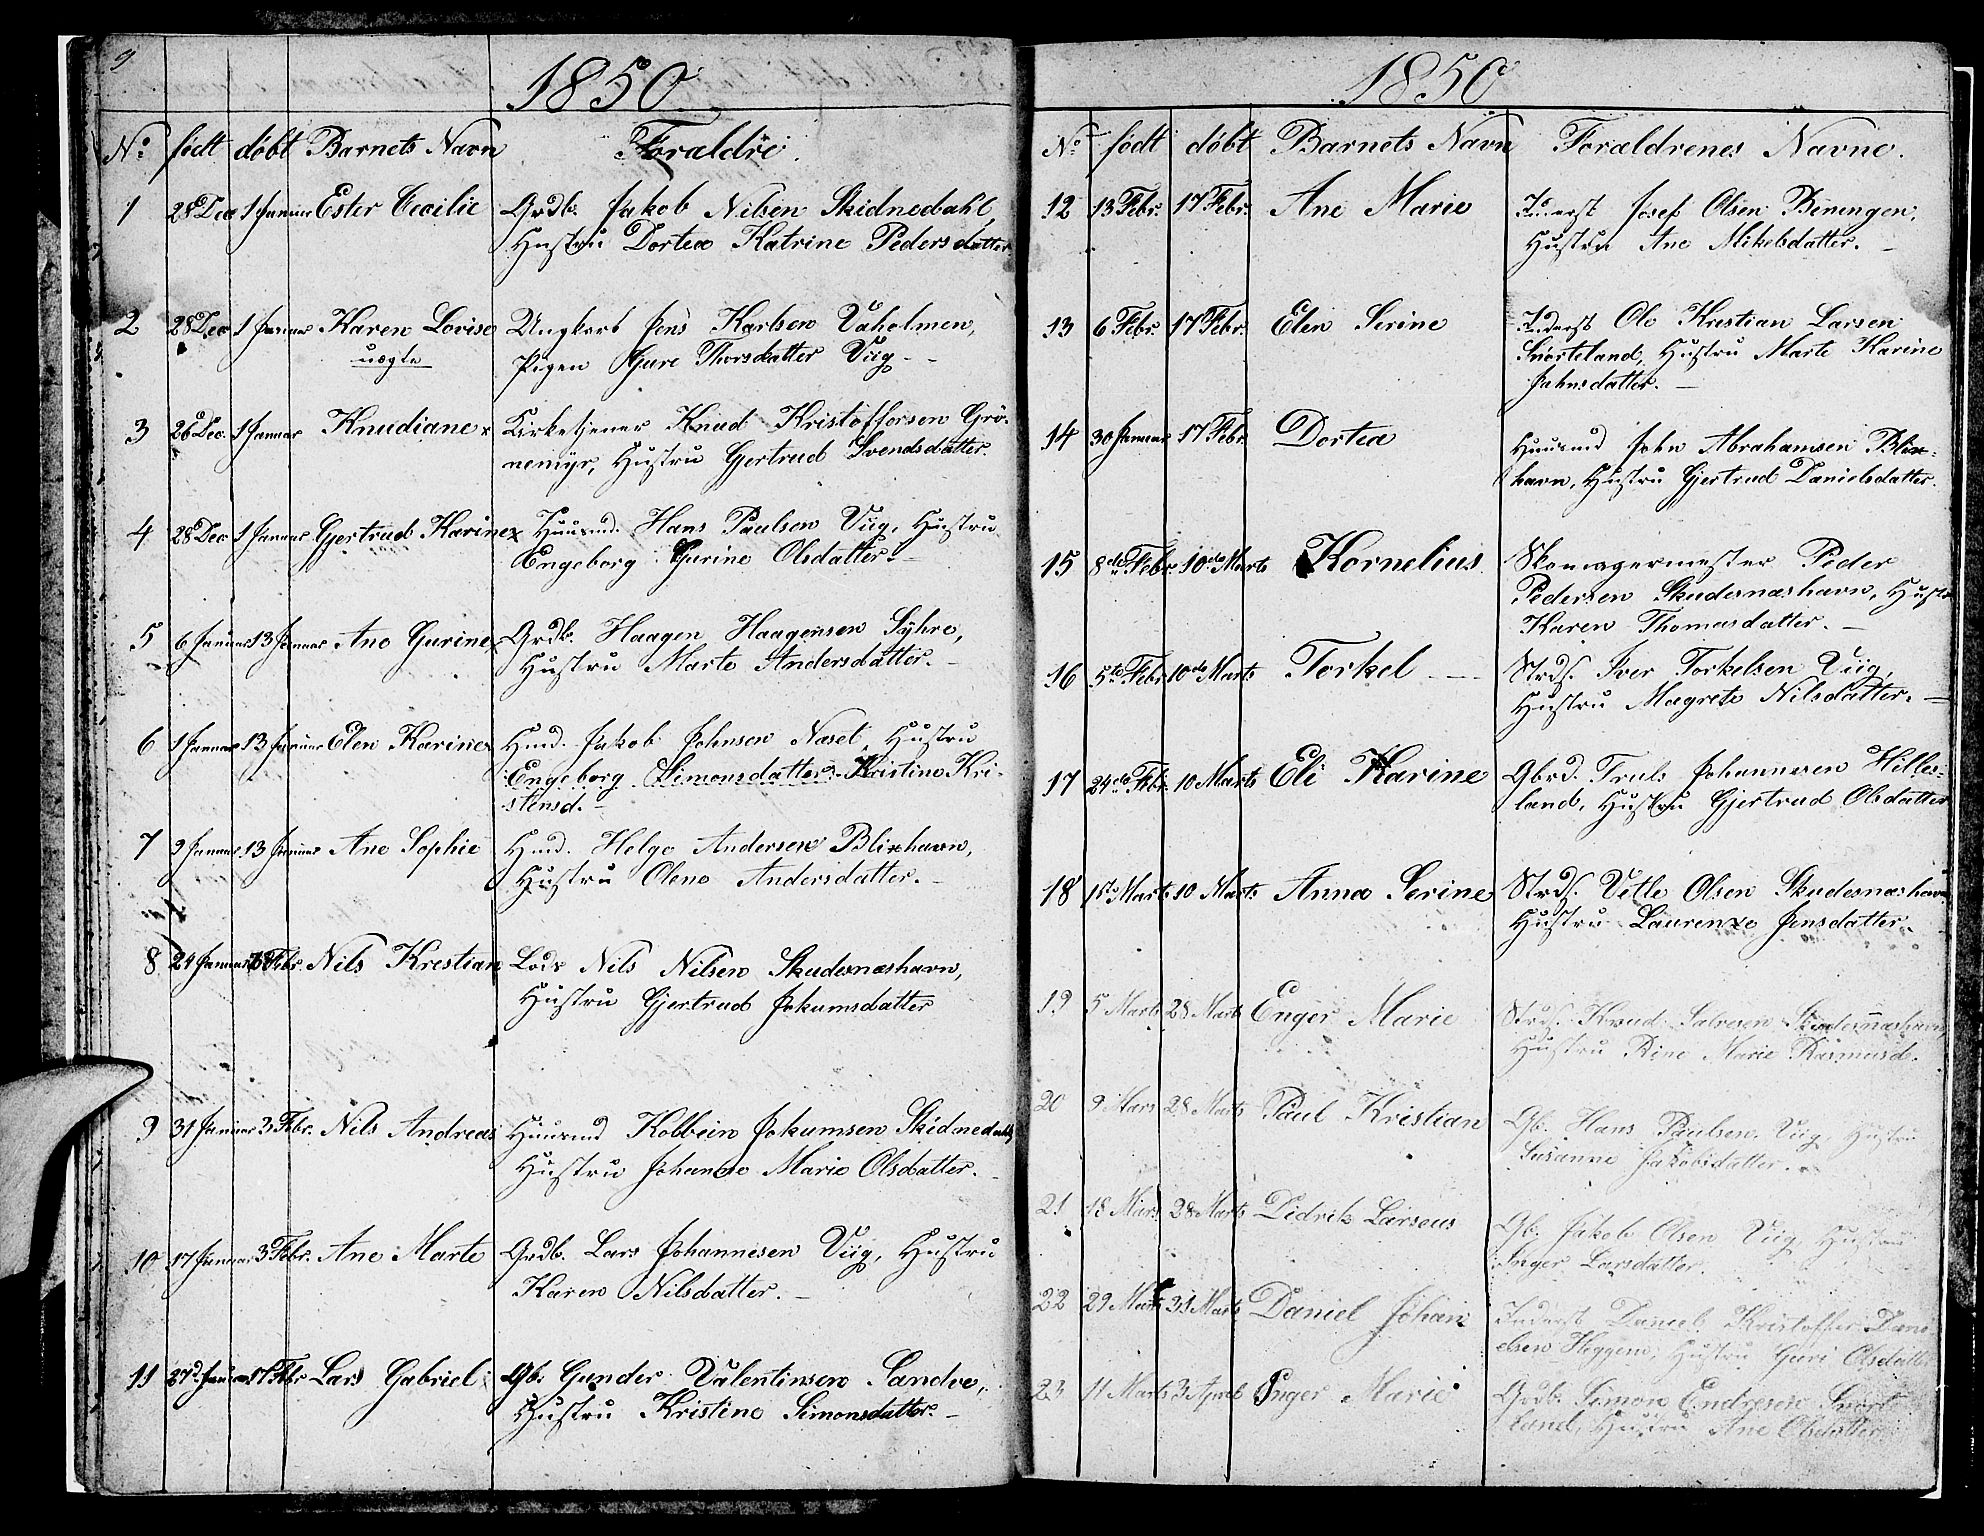 9
1850
No født døbt Barnets Navn Foraldre
1 28 Dec 1 Januar Ester Cecilie Grdb. Jakob Nilsen Skidnedahl,
Hustru Dortea Katrine Pedersdatter
2 28 Dec 1 Januar Karen Lovise Ungkarl Jens Karlsen Vaholmen,
uægte Pigen Gure Thorsdatter Viig
3 26 Dec. 1 Januar Knudiane Kirketjener Knud Kristoffersen Grö-
nemyr, Hustru Gjertrud Svendsdatter.
4 28 Dec 1 Januar Gjertrud Karine Huusmd. Hans Paulsen Viig, Hustru
Engeborg Gurine Olsdatter.
5 6 Januar 13 Januar Ane Gurine Grdb. Haagen Haagensen Syhre,
Hustru Marte Andersdatter.
6 1 Januar 13 Januar Elen Karine Hmd. Jakob Johnsen Naset, Hustru
Engeborg Simonsdatter. Kristine Kri-
stensd.
7 9 Januar 13 Januar Ane Sophie Hmd. Helge Andersen Blixhavn,
Hustru Olene Andersdatter.
8 24 Januar Febr. Nils Krestian Lods Nils Nilsen Skudesnæshavn,
Hustru Gjertrud Jokumsdatter
9 31 Januar 3 Febr. Nils Andreas Huusmd Kolbein Jokumsen Skidnedahl
Hustru Johanne Marie Olsdatter.
10 17 Januar 3 Febr. Ane Marte Grdb. Lars Johannesen Viig, Hustru
Karen Nilsdatter.
11 27d Januar 17 Febr Lars Gabriel Gb. Gunder Valentinsen Sandve,
Hustru Kristine Simonsdatter.
1850
No født døbt Barnets Navn Foraldrenes Navne.
12 13 Febr. 17 Febr. Ane Marie Inderst Josef Olsen Beningen,
Hustru Ane Mikelsdatter.
13 6 Febr. 17 Febr. Elen Serine Inderst Ole Krestian Larsen
Snørteland, Hustru Marte Karine
Jahnsdatter.
14 30 Januar 17 Febr. Dortea Huusmd John Abrahamsen Blix-
havn, Hustru Gjertrud Danielsdatter.
15 8de Febr. 10de Marts Kornelius Skomagermester Peder
Pedersen Skudesnæshavn, Hustru
Karen Thomasdatter.
16 5te Febr 10de Marts Torkel Strds. Iver Torkelsen Viig,
Hustru Magrete Nilsdatter.
17 24de Febr. 10 Marts Eli Karine Gbrd. Truls Johannesen Hilles-
land, Hustru Gjertrud Olsdatter
18 1ste Marts 10 Marts Anna Serine Strds. Vetle Olsen Skudesnæshavn
Hustru Laurenze Jensdatter.
19 5 Marts 28 Marts Enger Marie Strds. Knud Salvesen Skudesnæshavn,
Hustru Rine Marie Rasmusd.
20 9 Mars 28 Marts Paul Kristian Gb. Hans Paulsen Viig, Hustru
Susanne Jakobsdatter.
21 18 Mars 28 Marts Didrik Larseus Gb. Jakob Olsen Viig, Hustru
Inger Larsdatter.
22 29 Mars 31 Marts Daniel Johan Inderst Daniel Kristoffer Dani-
elsen Heggem, Hustru Guri Olsdatter
23 11 Marts 3 April Inger Marie Grdb. Simon Endresen Snørte-
land, Hustru Ane Olsdatter